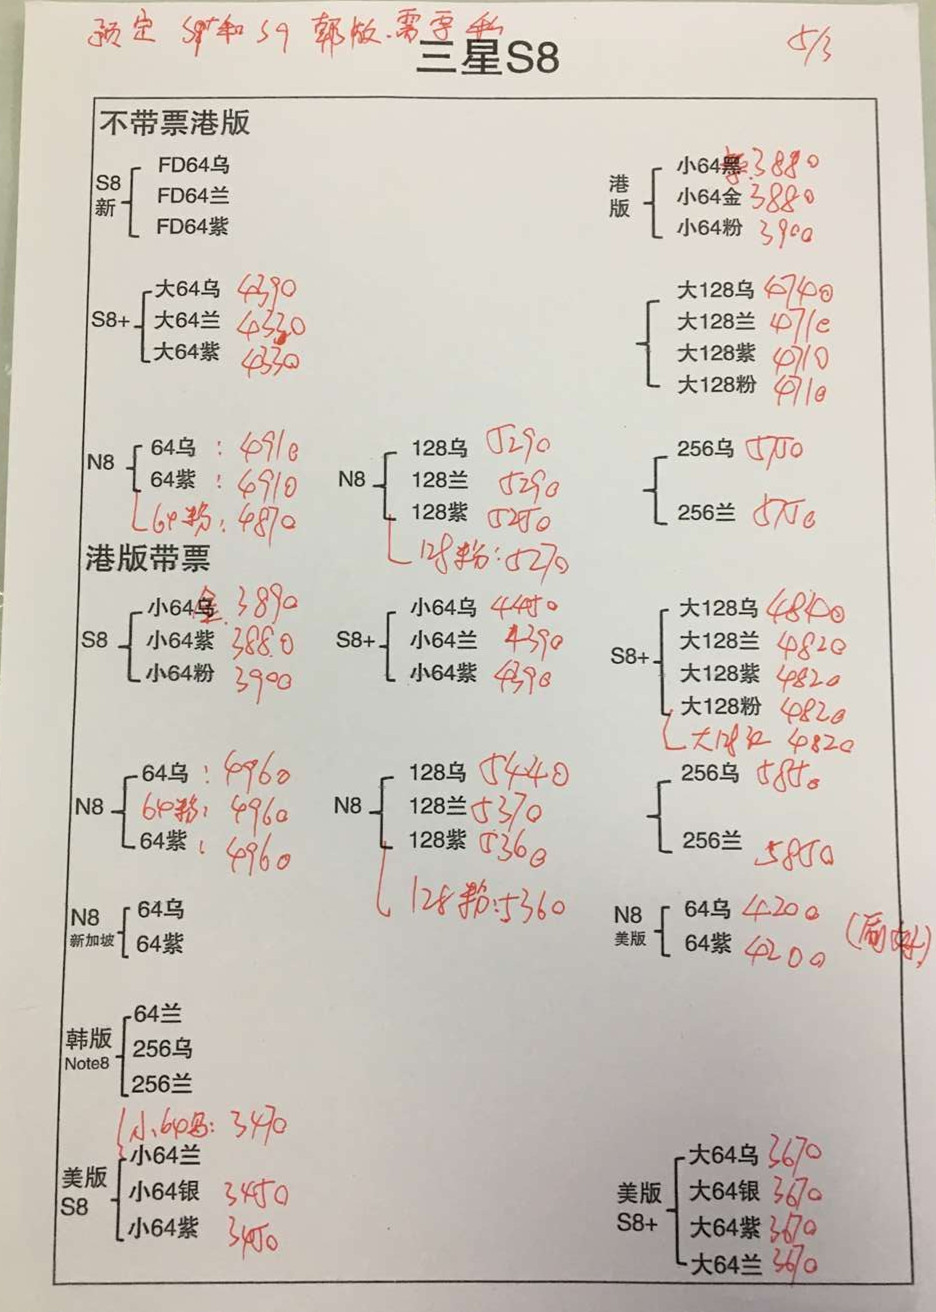 预定 S9+和 S9 韩版.需要私
5/3
三星S8
不带票港版
S8 新
FD64乌
FD64兰
FD64紫
港版
小64黑 3880
小64金 3880
小64粉 3900
S8+
大64乌 4390
大64兰 4330
大64紫 4330
大128乌 4740
大128兰 4710
大128紫 4710
大128粉 4710
N8
64乌 : 4910
64紫 : 4910
64粉: 4870
N8
128乌 5290
128兰 5290
128紫 5250
128粉:5270
256乌 5750
256兰 5750
港版带票
S8
小64金 3890
小64紫 3880
小64粉 3900
S8+
小64乌 4450
小64兰 4390
小64紫 4390
S8+
大128乌 4840
大128兰 4820
大128紫 4820
大128粉 4820
大128红 4820
N8
64乌 : 4960
64粉: 4960
64紫 : 4960
N8
128乌 5440
128兰 5370
128紫 5360
128粉:5360
256乌 5850
256兰 5850
N8 新加坡
64乌
64紫
N8 美版
64乌 4200
64紫 4200
韩版 Note8
64兰
256乌
256兰
小64乌: 3470
美版 S8
小64兰
小64银 3450
小64紫 3450
美版 S8+
大64乌 3670
大64银 3670
大64紫 3670
大64兰 3670